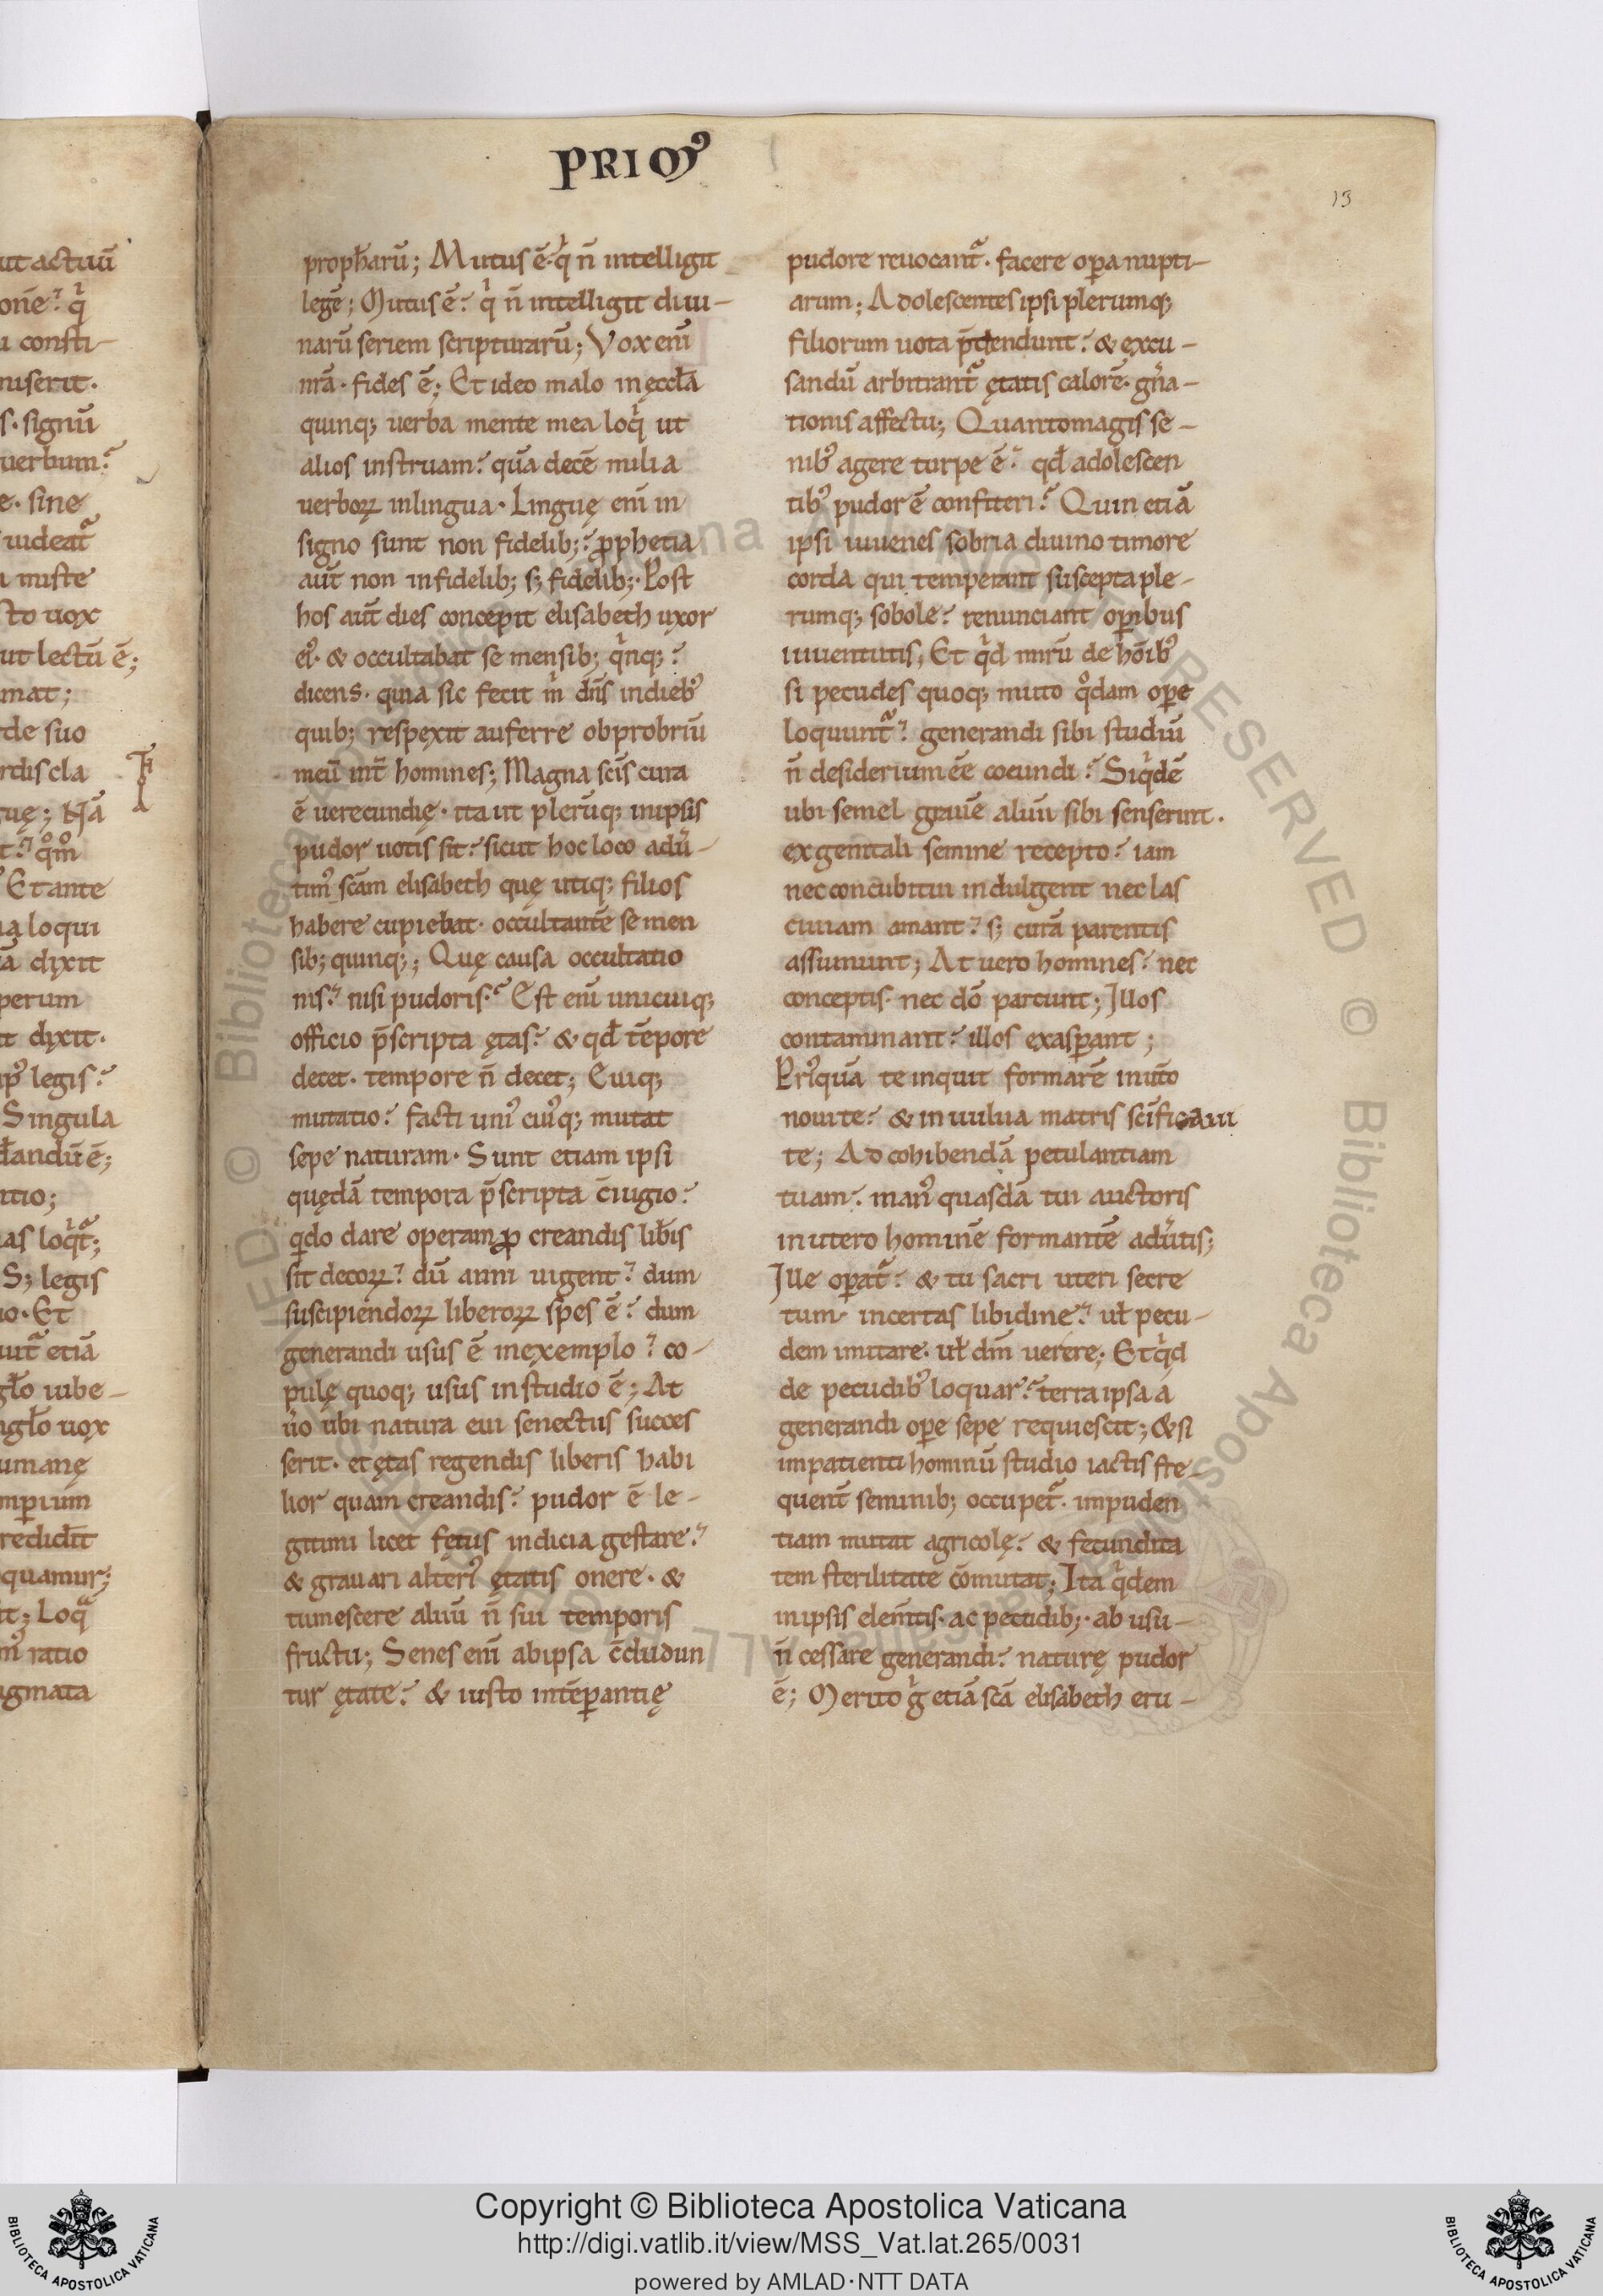 PRIMUS
13
ut actuū
one᷑ qͥ
u consti-
miserit.
s. signū
uerbum
e. sine
uideat᷑
u miste
sto uox
ut lectū ē;
mat;
de suo
rdis cla
guę; Nā
t qͦmͦ
Et ante
ia loqui
ā dixit
perum
it dixit.
legis
Singula
andū ē;
itio;
as loqͥt᷑;
S; legis
io. Et
uit᷑ etiā
glo iube-
nglo uox
umanę
mperium
credidit
quamur;
it; Loqͣ
ratio
agmata
prophaꝝ; Mutus ē. qͥ n̄ intelligit
legē; Mutus ē qͥ n̄ intelligit diui-
narū seriem scripturarū; Vox eni᷑
nr̄a. fides ē; Et ideo malo in ęccła
quinq; uerba mente mea loqͥ ut
alios instruam qͣ̄ decē milia
uerboꝝ in lingua. Linguę eni᷑ in
signo sunt non fidelib; ꝓphetia
aut̄ non infidelib; s; fidelib;. Post
hos aut̄ dies concepit elisabeth uxor
eiꝰ. & occultabat se mensib; qͥnq;
dicens. quia sic fecit mͥ dn̄s in diebꝰ
quib; respexit auferre obprobriū
meū int̄ homines; Magna scīs cura
ē uerecundię. ita ut plerūq; in ipsis
pudor uotis sit sicut hoc loco adu͛-
timꝰ scām elisabeth quę utiq; filios
habere cupiebat. occultantē se men
sib; quinq;; Quę causa occultatio
nis nisi pudoris. Est eni᷑ unicuiq;
officio p̄scripta ętas & qd̄ tēpore
decet. tempore n̄ decet; Cuiq;
mutatio facti uniꝰ cuiꝰq; mutat
sepe naturam. Sunt etiam ipsi
quędā tempora p̄scripta c̄iugio
qͣdo dare operam ꝓ creandis libis
sit decoꝝ dū anni uigent dum
suscipiendoꝝ liberoꝝ spes ē dum
generandi usus ē in exemplo co-
pulę quoq; usus in studio ē; At
u͛o ubi natura eui senectus succes
serit. et ętas regendis liberis habi
lior quam creandis pudor ē le-
gitimi licet fętus indicia gestare
& grauari alteriꝰ ętatis onere. &
tumescere aluū n̄ sui temporis
fructu; Senes eni᷑ ab ipsa c̄cludun
tur ętate & iusto intēꝑantię
pudore reuocant᷑. facere oꝑa nupti-
arum; Adolescentes ipsi plerumq;
filiorum uota p̄tendunt & excu-
sandū arbitrant᷑ ętatis calorē. gn̄a-
tionis affectu; Quanto magis se-
nibꝰ agere turpe ē qd̄ adolescen
tibꝰ pudor ē confiteri Quin etiā
ipsi iuuenes sobria diuino timore
corda qui temperant suscepta ple-
rumq; sobole renunciant oꝑibus
iuuentutis; Et qͥd mirū de hoībꝰ
si pecudes quoq; muto qͦdam oꝑe
loquunt᷑ generandi sibi studiū
n̄ desiderium ēē coeundi Siqͥdē
ubi semel grauē aluū sibi senserint.
ex genitali semine recepto iam
nec concubitui indulgent nec las
ciuiam amant s; curā parentis
assumunt; At uero homines nec
conceptis. nec dō parcunt; Illos
contaminant illos exasꝑant;
Priꝰquā te inquit formarē in uto
noui te & in uulua matris scīficaui
te; Ad cohibendā petulantiam
tuam. manꝰ quasdā tui auctoris
in utero hominē formantē adu͛tis;
Ille oꝑat᷑ & tu sacri uteri secre
tum incertas libidine uł pecu-
dem imitare. uł dm̄ uerere; Et qͥd
de pecudibꝰ loquar terra ipsa a
generandi oꝑe sepe requiescit; & si
impatienti hominū studio iactis fre-
quent̄ seminib; occupet᷑. impuden
tiam mutat agricolę & fecundita
tem sterilitate cōmutat; Ita qͥdem
in ipsis elem̄tis. ac pecudib;. ab usu-
n̄ cessare generandi naturę pudor
ē; Merito gͥ etiā scā elisabeth eru-
Copyright © Biblioteca Apostolica Vaticana
http://digi.vatlib.it/view/MSS_Vat.lat.265/0031
powered by AMLAD·NTT DATA
BIBLIOTECA APOSTOLICA VATICANA
BIBLIOTECA APOSTOLICA VATICANA